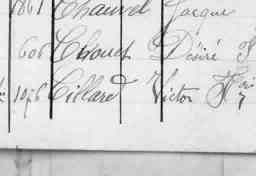 1861 Chauvel Jacque
606 Chouet Désiré
1076 Cillard Victor